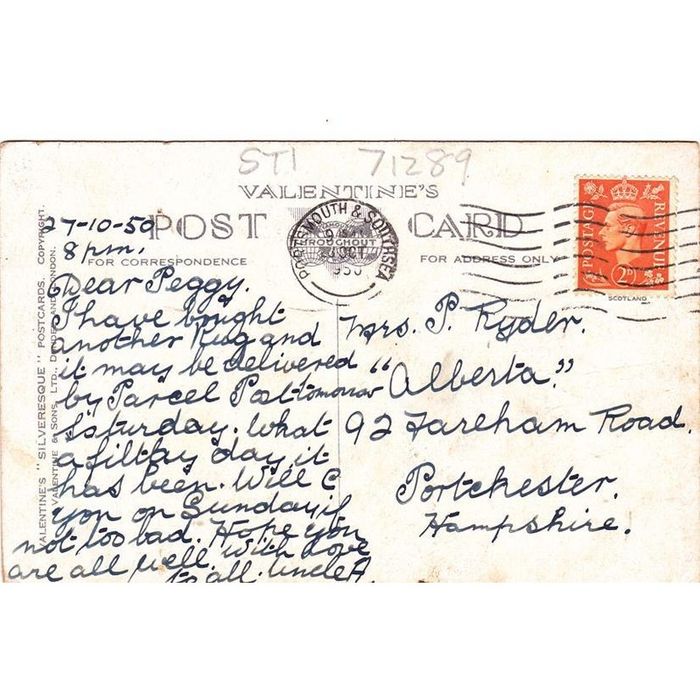 ST1 71289
VALENTINE'S
POST CARD
FOR CORRESPONDENCE
FOR ADDRESS ONLY
VALENTINE'S "SILVERESQUE" POSTCARDS. COPYRIGHT.
VALENTINE & SONS, LTD., DUNDEE AND LONDON.
PORTSMOUTH & SOUTHSEA
OCT
1950
POSTAGE REVENUE
2D
SCOTLAND
27-10-50
8 pm.
Dear Peggy.
I have bought
another Rug and
it may be delivered
by Parcel Post tomorrow
Saturday. What
a filthy day it
has been. Will C
you on Sunday if
not too bad. Hope you
are all well. With love
to all. Uncle A.
Mrs. P. Ryder.
"Alberta."
92 Fareham Road.
Portchester.
Hampshire.